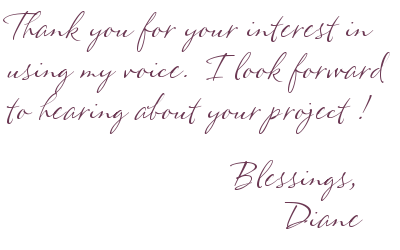 Thank you for your interest in
using my voice. I look forward
to hearing about your project !
Blessings,
Diane